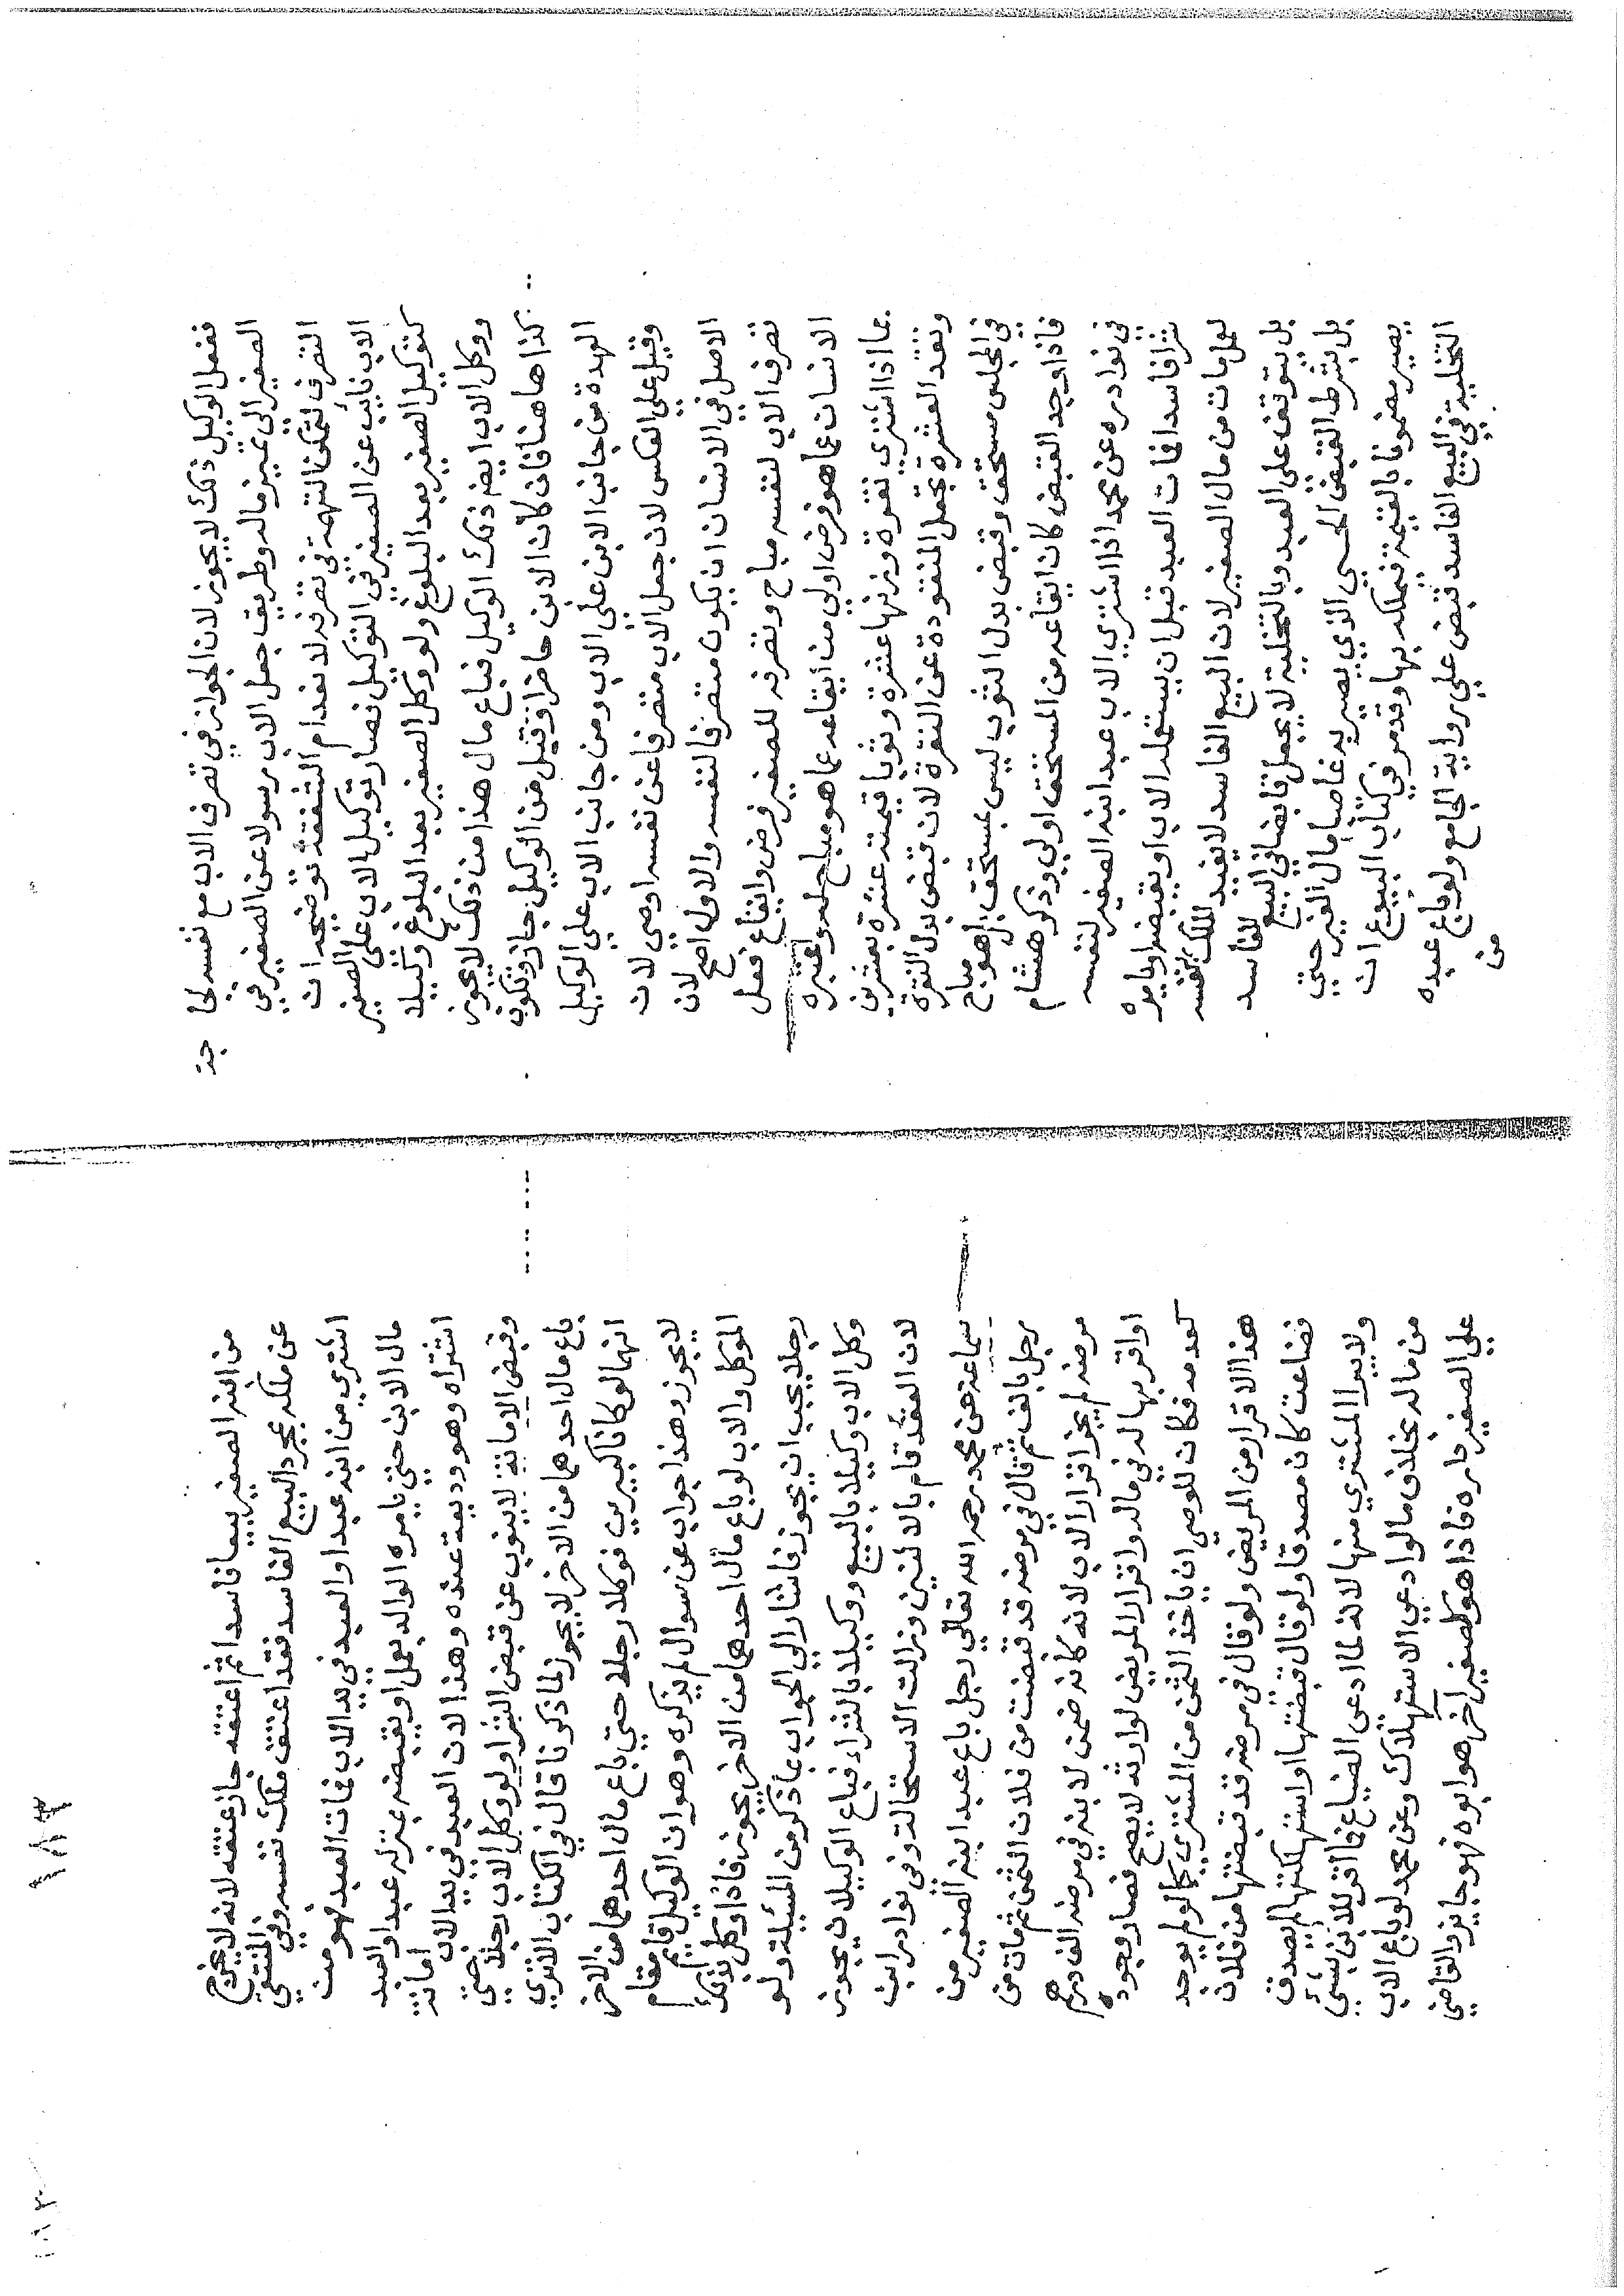 ففعل الوكيل ذلك لا يجوز لان الجواز في تصرف الاب مع نفسه لحا
جة
الصغير الى تميز ماله وطريق جعل الاب رسولا عن الصغير في
التصرف لتمكن التهمة في تصرفه لا نعدام الشفقة توضيحه ان
الاب نايب عن الصغير في التوكيل فصار توكيل الاب على الصغير
كتوكيل الصغير بعد البلوغ ولو وكل الصغير بعد البلوغ وكيلا
ووكل الاب ايضا ذلك الوكيل فباع مال هذا من ذلك لا يجوز
كذا هاهنا فان كان الابن حاضرا وقبل من الوكيل جاز وتكون
العهدة من جانب الابن على الاب ومن جانب الاب على الوكيل
وقيل على العكس لان جعل الاب متصرفا عن نفسه اوصي لان
الاصل في الانسان ان يكون متصرفا لنفسه والاول اصح لان
تصرف الاب لنفسه مباح وتصرفه للصغير فرض وايقاع فعل
الانسان عما هو فرض اولي من ايقاعه عما هو مباح له واعتبره
بما اذا اشتري نقرة وزنها عشرة وثوبا قيمته عشرة بعشرين
ونقد العشرة تجعل المنقودة عن النقرة لان قبض بدل النقرة
في المجلس مستحق وقبض بدل الثوب ليس بمستحق بل هو مباح
فاذا وجد القبض كان ايقاعه من المستحق اولي وذكر هشام
في نوادره عن محمد اذا اشتري الاب عبد ابنه الصغير لنفسه
شرا فاسدا فمات العبد قبل ان يستعمله الاب او يقبضه او يامره
بعمل مات من مال الصغير لان البيع الفاسد لا يفيد الملك بنفسه
بل يتوقف على العبد وبالتخلية لا يجعل قابضا في البيع الفاسد
بل بشرط القبض الحسي الذي يصير به غاصبا مال الغير حتي
يصير مضمونا بالقيمة فيملكه بها وقد مر في كتاب البيوع ان
التخلية في البيع الفاسد قبض علي رواية الجامع ولو باع عبده
من
من ابنه الصغير بيعا فاسدا ثم اعتقه جاز عتقه لانه لا يخرج
عن ملكه بمجرد البيع الفاسد فقد اعتق ملك نفسه وفي المنتقي
اشتري من ابنه عبدا والعبد في يد الاب فمات العبد فهو من
مال الابن حتي يامره الوالد بعمل او يقبضه بمنزلة عبد او العبد
اشتراه وهو وديعة عنده وهذا لان العبد في يد الاب امانة
وقبض الامانة لا ينوب عن قبض الشرا ولو وكل الاب رجلا حتي
باع مال احدهما من الاخر لا يجوز لما ذكرنا قال في الكتاب الا تري
انهما لو كانا كبيرين فوكلا رجلا حتي باع مال احدهما من الاخر
لا يجوز وهذا جواب عن سوال لم يذكره وهو ان الوكيل قايم مقام
الموكل والاب لو باع مال احدهما من الاخر يجوز فاذا وكل بذلك
رجلا يجب ان يجوز فاشار الي الجواب بما ذكر من المسئلة ولو
وكل الاب وكيلا بالبيع ووكيلا بالشراء فباع الوكيلان يجوز
لان العقد قام بالاثنين وزالت الاستحالة وفي نوادر ابن
سماعة عن محمد رحمه الله تعالي رجل باع عبدا بنه الصغير من
رجل بالف ثم قال في مرضه قد قبضت من فلان الثمن ثم مات من
مرضه لم يجز اقرار الاب لانه كانه ضمن لابنه في مرضه الف درهم
او اقر بها له في ماله واقرار المريض لوارثه لا يصح فصار وجوده
كعدمه فكان للوصي ان ياخذ الثمن من المشتري كما لو لم يوجد
هذا الاقرار من المريض ولو قال في مرضه قد قبضتها من فلان
فضاعت كان مصدقا ولو قال قبضتها واستهلكتها لم يصدق
ولا يبرا المشتري منها لانه لما ادعي الضياع فما اقر للابن بشئ
من ماله بخلاف ما لو ادعي الاستهلاك وعن محمد لو باع الاب
علي الصغير داره فاذا هو لصغير اخر هو ابوه فهو جايز والقاضي
١٨٣